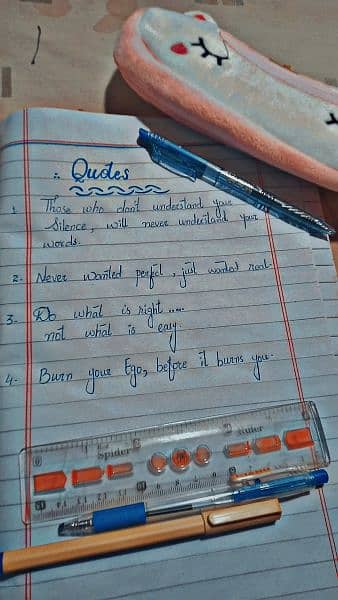 :. Quotes
1. Those who don't understand your
Silence, will never understand your
words.
2. Never wanted perfect, just wanted real.
3. Do what is right ....
not what is easy
4. Burn your Ego, before it burns you.
Spider Ruler